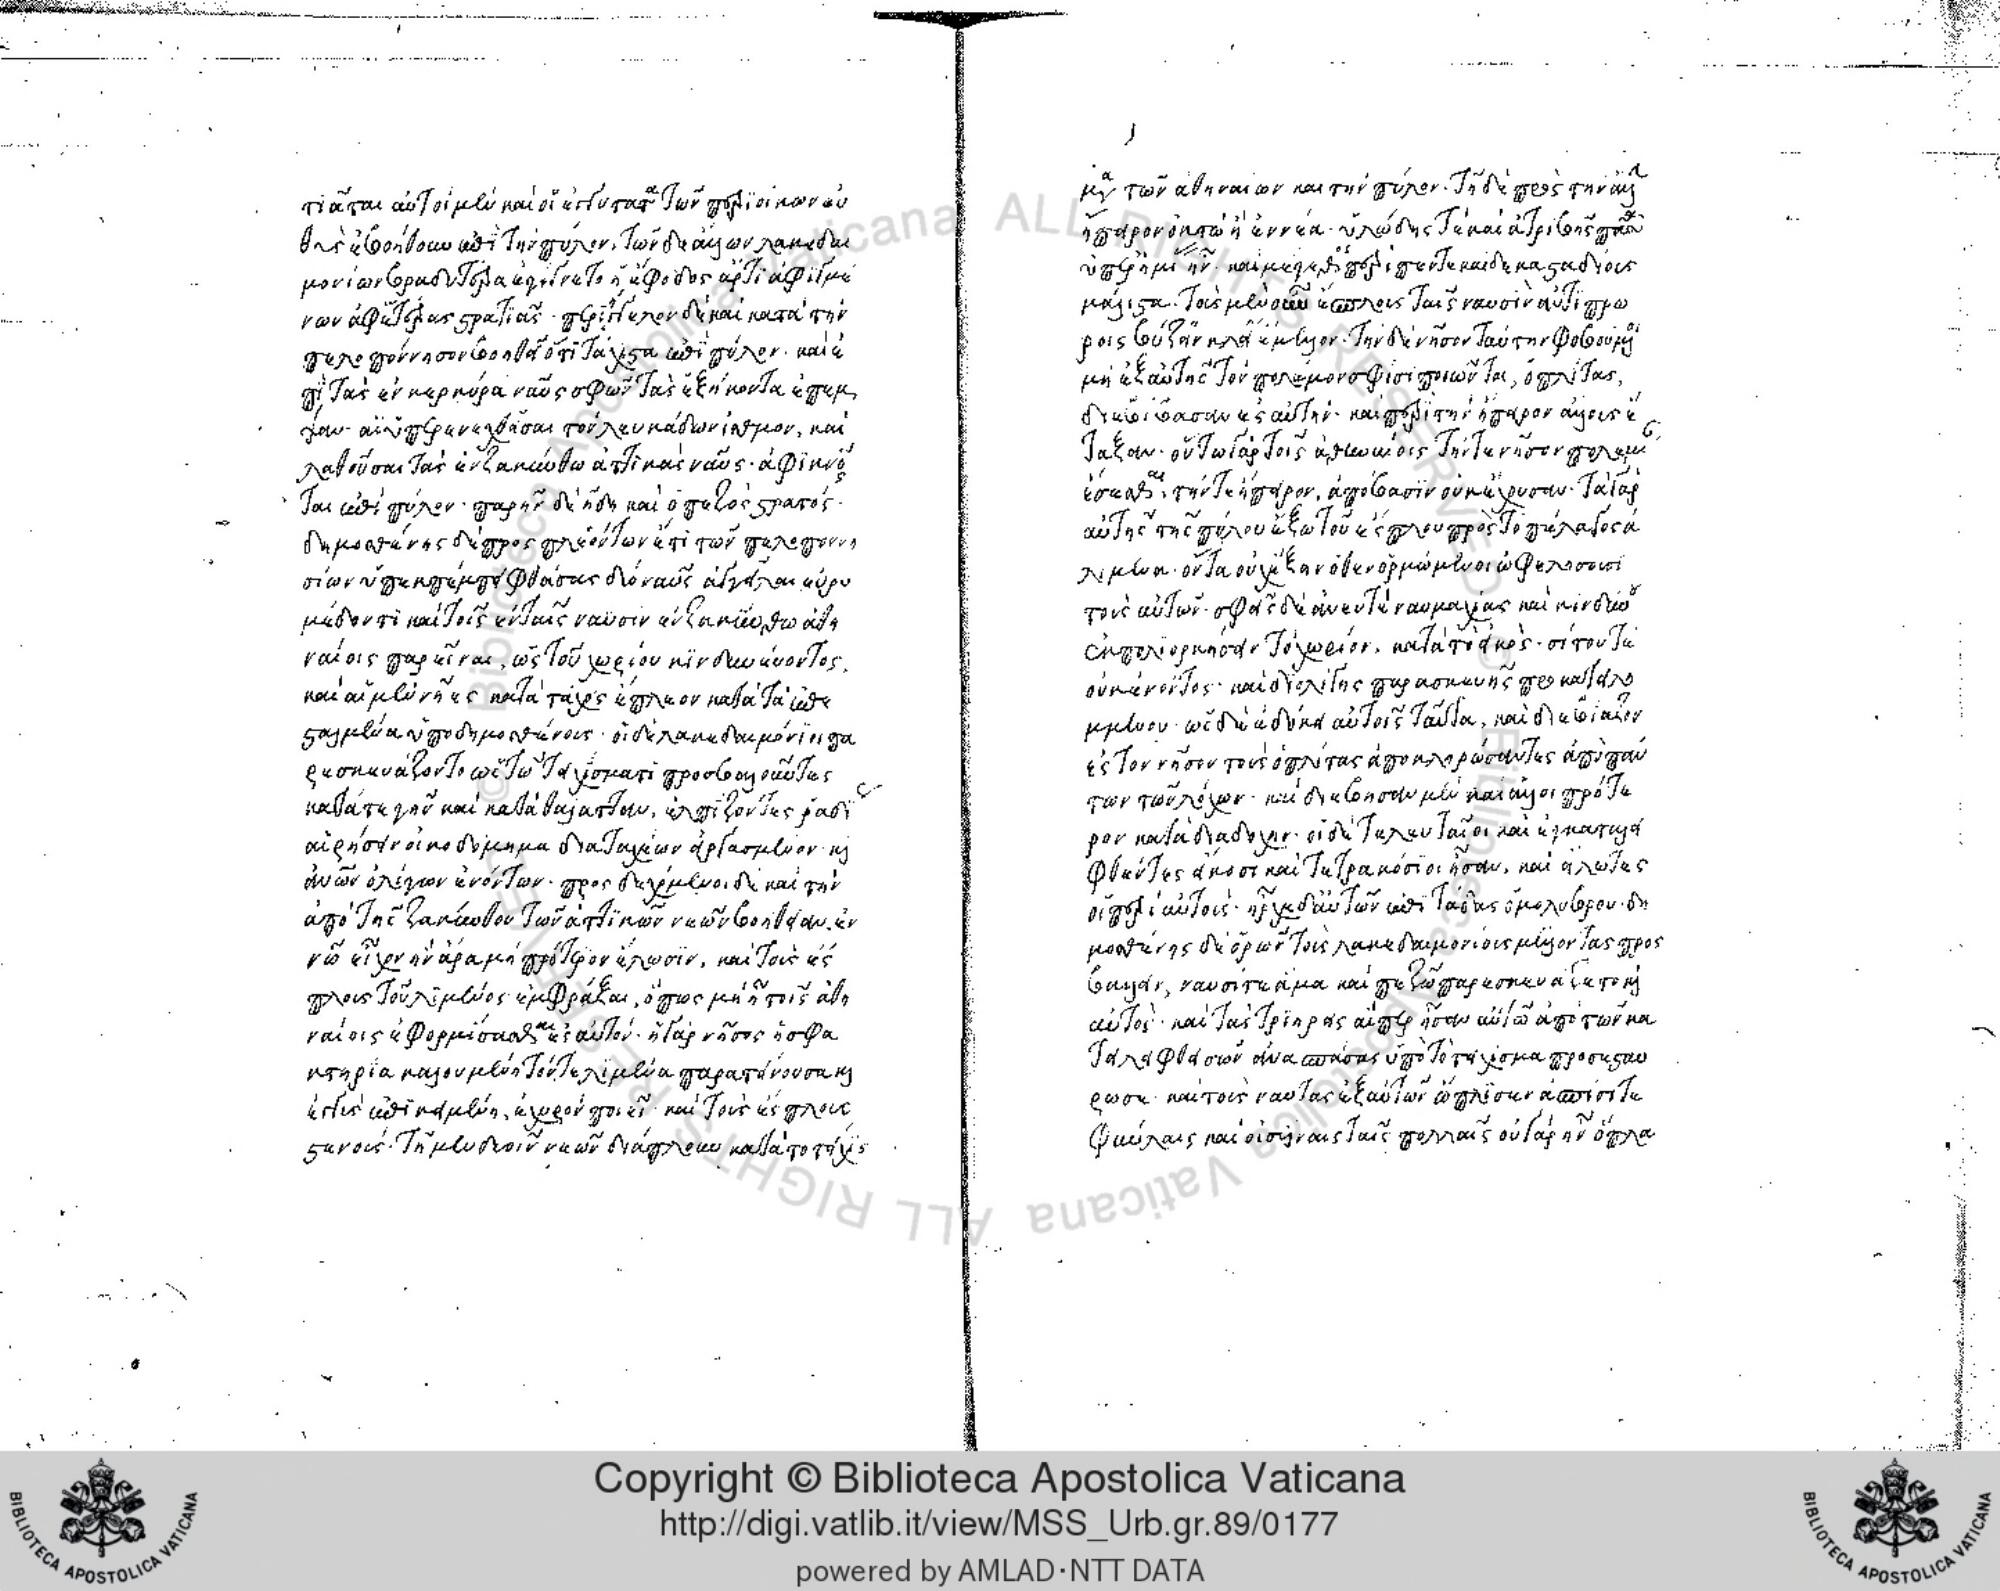 τιᾶται αὐτοὶ μὲν καὶ οἱ ἐγγύτατα τῶν περιοίκων εὐ
θὺς ἐβοήθουν ἐπὶ τὴν πύλον, τῶν δὲ ἄλλων λακεδαι
μονίων βραδυτέρα ἐγίγνετο ἡ ἔφοδος ἄρτι ἀφιγμέ
νων ἀφ' ἑτέρας στρατιᾶς· περιήγγελον δὲ καὶ κατὰ τὴν
πελοπόννησον βοηθεῖν ὅτι τάχιστα ἐπὶ πύλον· καὶ ἐ
πὶ τὰς ἐν κερκύρα ναῦς σφῶν τὰς ἑξήκοντα ἔπεμ
ψαν· αἳ ὑπερενεχθεῖσαι τὸν λευκάδων ἰσθμὸν, καὶ
λαθοῦσαι τὰς ἐν ζακύνθω ἀττικὰς ναῦς· ἀφικνοῦν
ται ἐπὶ πύλον· παρῆν δὲ ἤδη καὶ ὁ πεζὸς στρατός·
δημοσθένης δὲ προσπλεόντων ἔτι τῶν πελοποννη
σίων ὑπεκπέμπει φθάσας δύο ναῦς ἀγγεῖλαι εὐρυ
μέδοντι καὶ τοῖς ἐν ταῖς ναυσὶν ἐν ζακύνθω ἀθη
ναίοις παρεῖναι, ὡς τοῦ χωρίου κινδυνεύοντος,
καὶ αἱ μὲν νῆες κατὰ τάχος ἔπλεον κατὰ τὰ ἐπε
σταλμένα ὑπὸ δημοσθένους· οἱ δὲ λακεδαιμόνιοι πα
ρεσκευάζοντο ὡς τῶ τειχίσματι προσβαλοῦντες
κατά τε γῆν καὶ κατὰ θάλατταν, ἐλπίζοντες ῥαδί
αἱρήσειν οἰκοδόμημα διὰ ταχέων εἰργασμένον· καὶ
ἀνθρώπων ὀλίγων ἐνόντων· προσδεχόμενοι δὲ καὶ τὴν
ἀπὸ τῆς ζακύνθου τῶν ἀττικῶν νεῶν βοήθειαν, ἐν
νῶ εἶχον ἢν ἄρα μὴ πρότερον ἕλωσιν, καὶ τοὺς ἔς
πλους τοῦ λιμένος ἐμφράξαι, ὅπως μὴ ἦ τοῖς ἀθη
ναίοις ἐφορμίσασθαι ἐς αὐτόν· ἡ γὰρ νῆσος ἡ σφα
κτηρία καλουμένη τόν τε λιμένα παρατείνουσα καὶ
ἐγγὺς ἐπικειμένη, ἐχυρὸν ποιεῖ· καὶ τοὺς ἔσπλους
στενούς· τῆ μὲν δυοῖν νεῶν διάπλουν κατὰ τὸ τεῖχος
μα τῶν ἀθηναίων καὶ τὴν πύλον· τῆ δὲ πρὸς τὴν ἄλλην
ἤπειρον ὀκτὼ ἢ ἐννέα· ὑλώδης τε καὶ ἀτριβὴς πᾶσα
ὑπ' ἐρημίας ἦν· καὶ μέγεθος περὶ πεντεκαίδεκα σταδίους
μάλιστα· τοὺς μὲν οὖν ἔσπλους ταῖς ναυσὶν ἀντιπρώ
ροις βύζην κλείσειν ἔμελλον· τὴν δὲ νῆσον ταύτην φοβούμενοι
μὴ ἐξ αὐτῆς τὸν πόλεμον σφίσι ποιῶνται, ὁπλίτας,
διεβίβασαν ἐς αὐτήν· καὶ περὶ τὴν ἤπειρον ἄλλους ἔ
ταξαν· οὕτω γὰρ τοῖς ἀθηναίοις τήν τε νῆσον πολεμί
ἔσεσθαι, τήν τε ἤπειρον, ἀπόβασιν οὐκ ἔχουσαν· τὰ γὰρ
αὐτῆς τῆς πύλου ἔξω τοῦ ἔσπλου πρὸς τὸ πέλαγος ἀ
λίμενα· ὄντα οὐχ ἕξειν ὅθεν ὁρμώμενοι ὠφελήσουσι
τοὺς αὐτῶν· σφεῖς δὲ ἄνευ τε ναυμαχίας καὶ κινδύνου
ἐκπολιορκήσειν τὸ χωρίον, κατὰ τὸ εἰκὸς· σίτου τε
οὐκ ἐνόντος· καὶ δι' ὀλίγης παρασκευῆς προκατειλη
μμένον· ὡς δὲ ἐδόκει αὐτοῖς ταῦτα, καὶ διεβίβαζον
ἐς τὸν νῆσον τοὺς ὁπλίτας ἀποκληρώσαντες ἀπὸ πάν
των τῶν λόχων· καὶ διέβησαν μὲν καὶ ἄλλοι πρότε
ρον κατὰ διαδοχήν· οἱ δὲ τελευταῖοι καὶ ἐγκαταλη
φθέντες εἴκοσι καὶ τετρακόσιοι ἦσαν, καὶ εἵλωτες
οἱ περὶ αὐτούς· ἦρχε δ' αὐτῶν ἐπιτάδας ὁ μολόβρου· δη
μοσθένης δὲ ὁρῶν τοὺς λακεδαιμονίους μέλλοντας προσ
βάλλειν, ναυσί τε ἅμα καὶ πεζῶ παρεσκευάζετο καὶ
αὐτὸς· καὶ τὰς τριήρεις αἵπερ ἦσαν αὐτῶ ἀπὸ τῶν κα
ταλειφθεισῶν ἀνασπάσας ὑπὸ τὸ τείχισμα προσεσταύ
ρωσε· καὶ τοὺς ναύτας ἐξ αὐτῶν ὥπλισεν ἀσπίσι τε
φαύλαις καὶ οἰσυίναις ταῖς πολλαῖς οὐ γὰρ ἦν ὅπλα
Copyright © Biblioteca Apostolica Vaticana
http://digi.vatlib.it/view/MSS_Urb.gr.89/0177
powered by AMLAD·NTT DATA
BIBLIOTECA APOSTOLICA VATICANA
BIBLIOTECA APOSTOLICA VATICANA